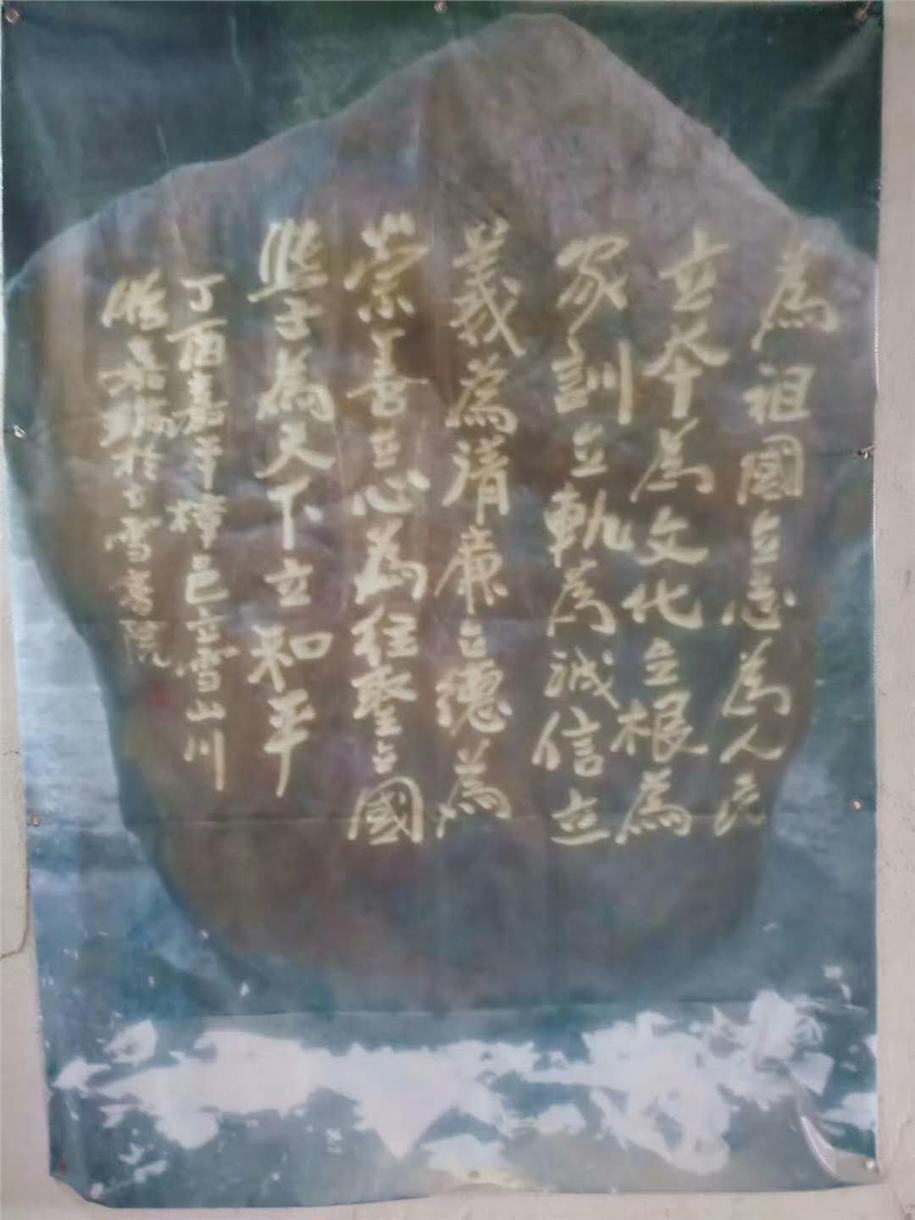 為祖國立志為人民
立本為文化立根為
家訓立軌為誠信立
義為清廉立德為
崇善立心為往聖立國
學子為天下立和平
丁酉嘉平樟邑立雪山川
於立雪書院